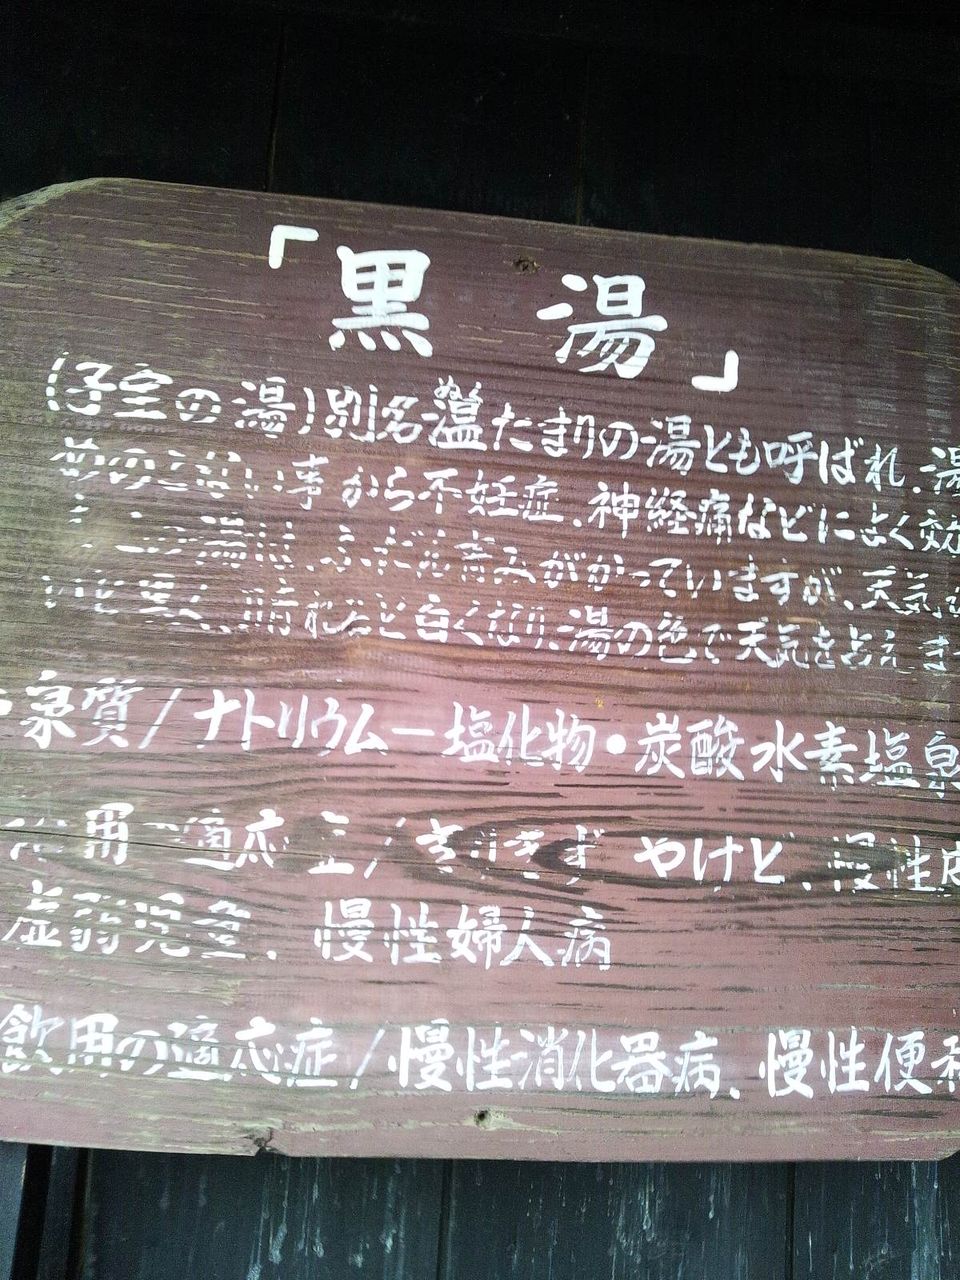 「黒 湯」
(子宝の湯)別名温たまりの湯とも呼ばれ、湯
めのこ い事から不妊症、神経痛などによく効
湯は、ふだんも青みがかっていますが、天気が
いと黒く、晴れると白くなり、湯の色で天気を占えま
泉質/ナトリウムー塩化物・炭酸水素塩泉
浴用の適応症/きりきず やけど、慢性皮
虚弱児童、慢性婦人病
飲用の適応症/慢性消化器病、慢性便秘